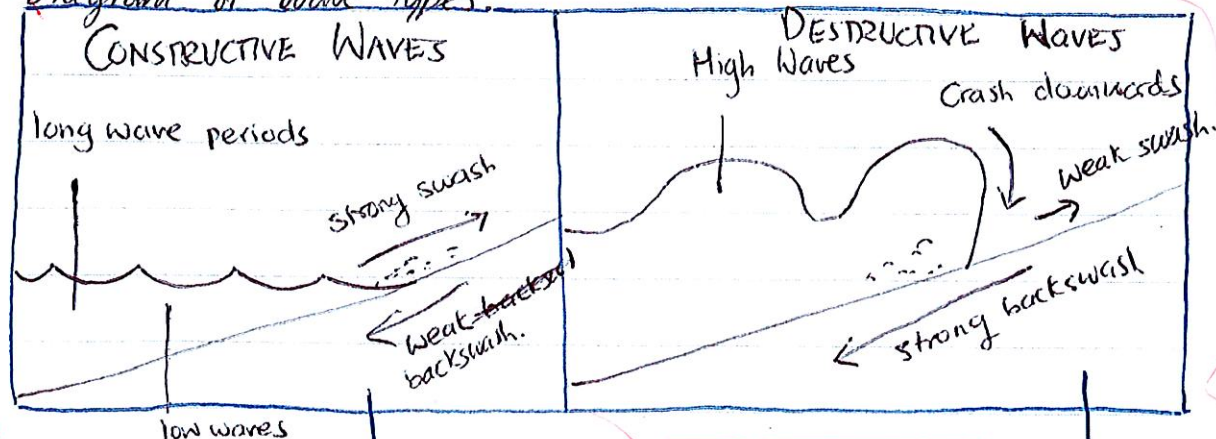 Diagram of wave types.
CONSTRUCTIVE WAVES
long wave periods
strong swash
weak
backswash.
low waves
DESTRUCTIVE WAVES
High Waves
Crash downwards
weak swash.
strong backswash